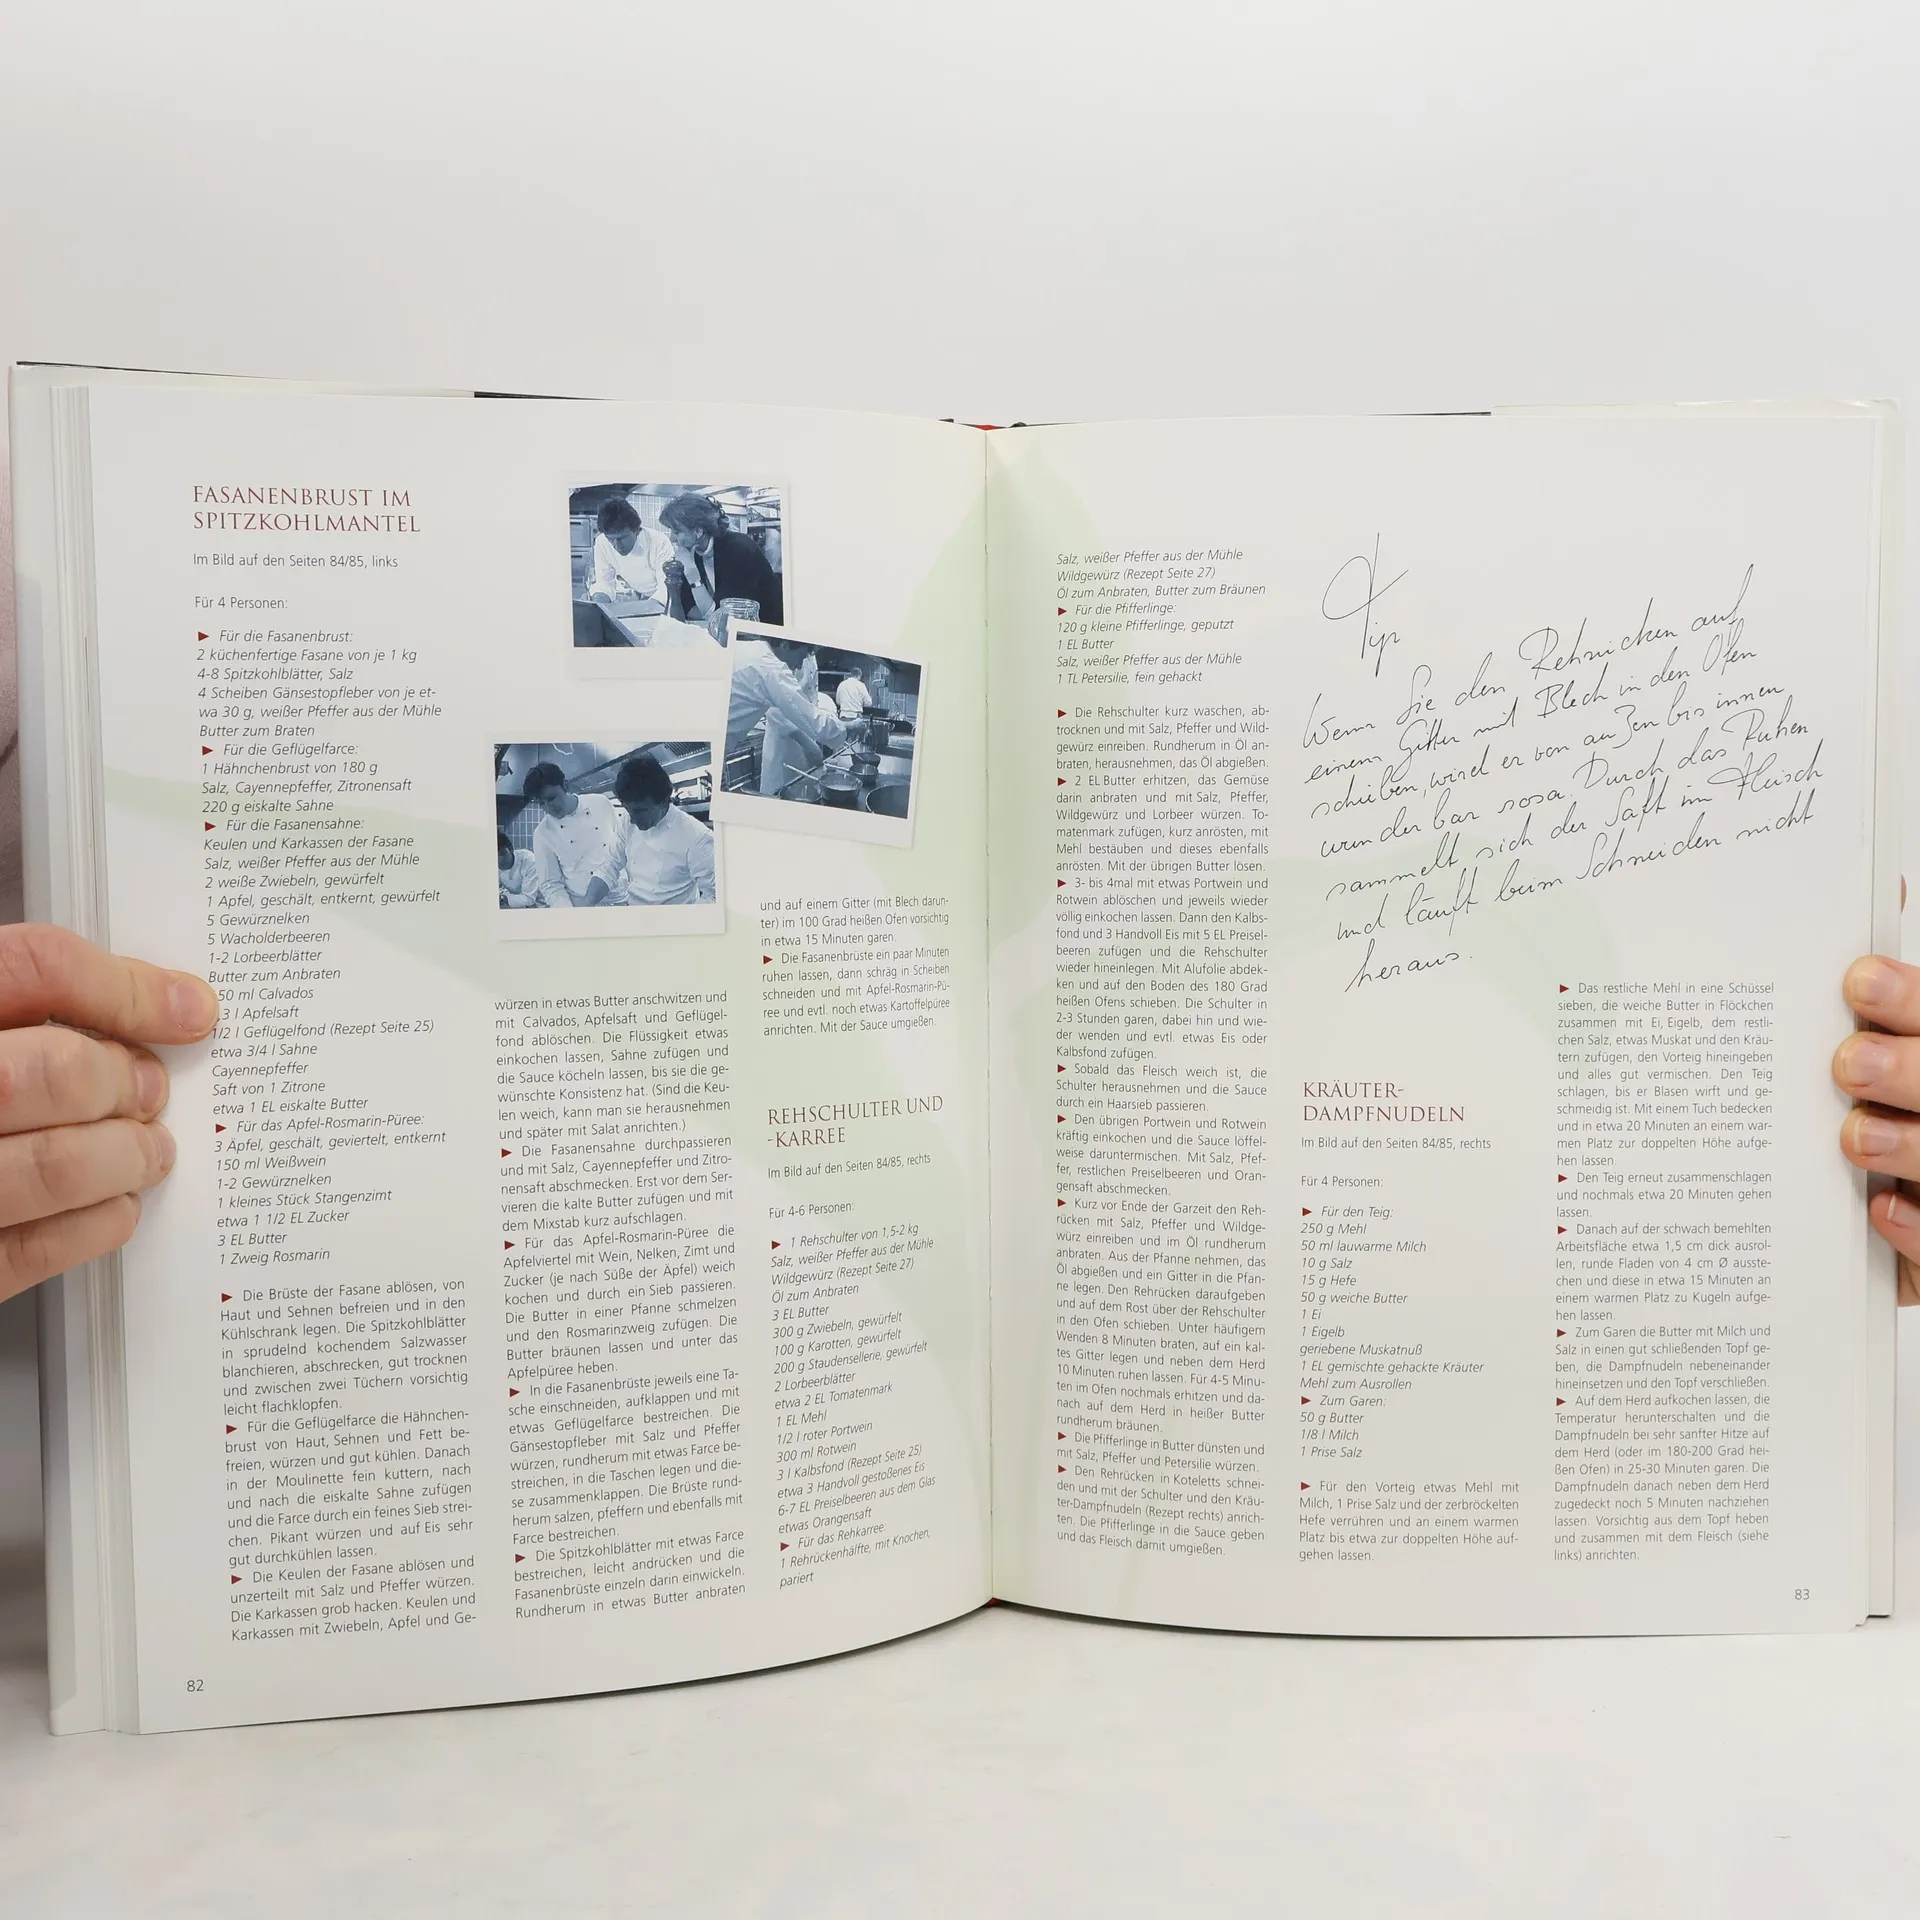 FASANENBRUST IM
SPITZKOHLMANTEL
Im Bild auf den Seiten 84/85, links
Für 4 Personen:
► Für die Fasanenbrust:
2 küchenfertige Fasane von je 1 kg
4-8 Spitzkohlblätter, Salz
4 Scheiben Gänsestopfleber von je et-
wa 30 g, weißer Pfeffer aus der Mühle
Butter zum Braten
► Für die Geflügelfarce:
1 Hähnchenbrust von 180 g
Salz, Cayennepfeffer, Zitronensaft
220 g eiskalte Sahne
► Für die Fasanensahne:
Keulen und Karkassen der Fasane
Salz, weißer Pfeffer aus der Mühle
2 weiße Zwiebeln, gewürfelt
1 Apfel, geschält, entkernt, gewürfelt
5 Gewürznelken
5 Wacholderbeeren
1-2 Lorbeerblätter
Butter zum Anbraten
50 ml Calvados
3 l Apfelsaft
1/2 l Geflügelfond (Rezept Seite 25)
etwa 3/4 l Sahne
Cayennepfeffer
Saft von 1 Zitrone
etwa 1 EL eiskalte Butter
► Für das Apfel-Rosmarin-Püree:
3 Äpfel, geschält, geviertelt, entkernt
150 ml Weißwein
1-2 Gewürznelken
1 kleines Stück Stangenzimt
etwa 1 1/2 EL Zucker
3 EL Butter
1 Zweig Rosmarin
► Die Brüste der Fasane ablösen, von
Haut und Sehnen befreien und in den
Kühlschrank legen. Die Spitzkohlblätter
in sprudelnd kochendem Salzwasser
blanchieren, abschrecken, gut trocknen
und zwischen zwei Tüchern vorsichtig
leicht flachklopfen.
► Für die Geflügelfarce die Hähnchen-
brust von Haut, Sehnen und Fett be-
freien, würzen und gut kühlen. Danach
in der Moulinette fein kuttern, nach
und nach die eiskalte Sahne zufügen
und die Farce durch ein feines Sieb strei-
chen. Pikant würzen und auf Eis sehr
gut durchkühlen lassen.
► Die Keulen der Fasane ablösen und
unzerteilt mit Salz und Pfeffer würzen.
Die Karkassen grob hacken. Keulen und
Karkassen mit Zwiebeln, Apfel und Ge-
würzen in etwas Butter anschwitzen und
mit Calvados, Apfelsaft und Geflügel-
fond ablöschen. Die Flüssigkeit etwas
einkochen lassen, Sahne zufügen und
die Sauce köcheln lassen, bis sie die ge-
wünschte Konsistenz hat. (Sind die Keu-
len weich, kann man sie herausnehmen
und später mit Salat anrichten.)
► Die Fasanensahne durchpassieren
und mit Salz, Cayennepfeffer und Zitro-
nensaft abschmecken. Erst vor dem Ser-
vieren die kalte Butter zufügen und mit
dem Mixstab kurz aufschlagen.
► Für das Apfel-Rosmarin-Püree die
Apfelviertel mit Wein, Nelken, Zimt und
Zucker (je nach Süße der Äpfel) weich
kochen und durch ein Sieb passieren.
Die Butter in einer Pfanne schmelzen
und den Rosmarinzweig zufügen. Die
Butter bräunen lassen und unter das
Apfelpüree heben.
► In die Fasanenbrüste jeweils eine Ta-
sche einschneiden, aufklappen und mit
etwas Geflügelfarce bestreichen. Die
Gänsestopfleber mit Salz und Pfeffer
würzen, rundherum mit etwas Farce be-
streichen, in die Taschen legen und die-
se zusammenklappen. Die Brüste rund-
herum salzen, pfeffern und ebenfalls mit
Farce bestreichen.
► Die Spitzkohlblätter mit etwas Farce
bestreichen, leicht andrücken und die
Fasanenbrüste einzeln darin einwickeln.
Rundherum in etwas Butter anbraten
und auf einem Gitter (mit Blech darun-
ter) im 100 Grad heißen Ofen vorsichtig
in etwa 15 Minuten garen.
► Die Fasanenbrüste ein paar Minuten
ruhen lassen, dann schräg in Scheiben
schneiden und mit Apfel-Rosmarin-Pü-
ree und evtl. noch etwas Kartoffelpüree
anrichten. Mit der Sauce umgießen.
REHSCHULTER UND
-KARREE
Im Bild auf den Seiten 84/85, rechts
Für 4-6 Personen:
► 1 Rehschulter von 1,5-2 kg
Salz, weißer Pfeffer aus der Mühle
Wildgewürz (Rezept Seite 27)
Öl zum Anbraten
3 EL Butter
300 g Zwiebeln, gewürfelt
100 g Karotten, gewürfelt
200 g Staudensellerie, gewürfelt
2 Lorbeerblätter
etwa 2 EL Tomatenmark
1 EL Mehl
1/2 l roter Portwein
300 ml Rotwein
3 l Kalbsfond (Rezept Seite 25)
etwa 3 Handvoll gestoßenes Eis
6-7 EL Preiselbeeren aus dem Glas
etwas Orangensaft
► Für das Rehkarree:
1 Rehrückenhälfte, mit Knochen,
pariert
82
Salz, weißer Pfeffer aus der Mühle
Wildgewürz (Rezept Seite 27)
Öl zum Anbraten, Butter zum Bräunen
► Für die Pfifferlinge:
120 g kleine Pfifferlinge, geputzt
1 EL Butter
Salz, weißer Pfeffer aus der Mühle
1 TL Petersilie, fein gehackt
► Die Rehschulter kurz waschen, ab-
trocknen und mit Salz, Pfeffer und Wild-
gewürz einreiben. Rundherum in Öl an-
braten, herausnehmen, das Öl abgießen.
► 2 EL Butter erhitzen, das Gemüse
darin anbraten und mit Salz, Pfeffer,
Wildgewürz und Lorbeer würzen. To-
matenmark zufügen, kurz anrösten, mit
Mehl bestäuben und dieses ebenfalls
anrösten. Mit der übrigen Butter lösen.
► 3- bis 4mal mit etwas Portwein und
Rotwein ablöschen und jeweils wieder
völlig einkochen lassen. Dann den Kalbs-
fond und 3 Handvoll Eis mit 5 EL Preisel-
beeren zufügen und die Rehschulter
wieder hineinlegen. Mit Alufolie abdek-
ken und auf den Boden des 180 Grad
heißen Ofens schieben. Die Schulter in
2-3 Stunden garen, dabei hin und wie-
der wenden und evtl. etwas Eis oder
Kalbsfond zufügen.
► Sobald das Fleisch weich ist, die
Schulter herausnehmen und die Sauce
durch ein Haarsieb passieren.
► Den übrigen Portwein und Rotwein
kräftig einkochen und die Sauce löffel-
weise daruntermischen. Mit Salz, Pfef-
fer, restlichen Preiselbeeren und Oran-
gensaft abschmecken.
► Kurz vor Ende der Garzeit den Reh-
rücken mit Salz, Pfeffer und Wildge-
würz einreiben und im Öl rundherum
anbraten. Aus der Pfanne nehmen, das
Öl abgießen und ein Gitter in die Pfan-
ne legen. Den Rehrücken daraufgeben
und auf dem Rost über der Rehschulter
in den Ofen schieben. Unter häufigem
Wenden 8 Minuten braten, auf ein kal-
tes Gitter legen und neben dem Herd
10 Minuten ruhen lassen. Für 4-5 Minu-
ten im Ofen nochmals erhitzen und da-
nach auf dem Herd in heißer Butter
rundherum bräunen.
► Die Pfifferlinge in Butter dünsten und
mit Salz, Pfeffer und Petersilie würzen.
► Den Rehrücken in Koteletts schnei-
den und mit der Schulter und den Kräu-
ter-Dampfnudeln (Rezept rechts) anrich-
ten. Die Pfifferlinge in die Sauce geben
und das Fleisch damit umgießen.
Tip
Wenn Sie den Rehrücken auf
einem Gitter mit Blech in den Ofen
schieben, wird er von außen bis innen
wunderbar rosa. Durch das Ruhen
sammelt sich der Saft im Fleisch
und läuft beim Schneiden nicht
heraus.
KRÄUTER-
DAMPFNUDELN
Im Bild auf den Seiten 84/85, rechts
Für 4 Personen:
► Für den Teig:
250 g Mehl
50 ml lauwarme Milch
10 g Salz
15 g Hefe
50 g weiche Butter
1 Ei
1 Eigelb
geriebene Muskatnuß
1 EL gemischte gehackte Kräuter
Mehl zum Ausrollen
► Zum Garen:
50 g Butter
1/8 l Milch
1 Prise Salz
► Für den Vorteig etwas Mehl mit
Milch, 1 Prise Salz und der zerbröckelten
Hefe verrühren und an einem warmen
Platz bis etwa zur doppelten Höhe auf-
gehen lassen.
► Das restliche Mehl in eine Schüssel
sieben, die weiche Butter in Flöckchen
zusammen mit Ei, Eigelb, dem restli-
chen Salz, etwas Muskat und den Kräu-
tern zufügen, den Vorteig hineingeben
und alles gut vermischen. Den Teig
schlagen, bis er Blasen wirft und ge-
schmeidig ist. Mit einem Tuch bedecken
und in etwa 20 Minuten an einem war-
men Platz zur doppelten Höhe aufge-
hen lassen.
► Den Teig erneut zusammenschlagen
und nochmals etwa 20 Minuten gehen
lassen.
► Danach auf der schwach bemehlten
Arbeitsfläche etwa 1,5 cm dick ausrol-
len, runde Fladen von 4 cm Ø ausste-
chen und diese in etwa 15 Minuten an
einem warmen Platz zu Kugeln aufge-
hen lassen.
► Zum Garen die Butter mit Milch und
Salz in einen gut schließenden Topf ge-
ben, die Dampfnudeln nebeneinander
hineinsetzen und den Topf verschließen.
► Auf dem Herd aufkochen lassen, die
Temperatur herunterschalten und die
Dampfnudeln bei sehr sanfter Hitze auf
dem Herd (oder im 180-200 Grad hei-
ßen Ofen) in 25-30 Minuten garen. Die
Dampfnudeln danach neben dem Herd
zugedeckt noch 5 Minuten nachziehen
lassen. Vorsichtig aus dem Topf heben
und zusammen mit dem Fleisch (siehe
links) anrichten.
83